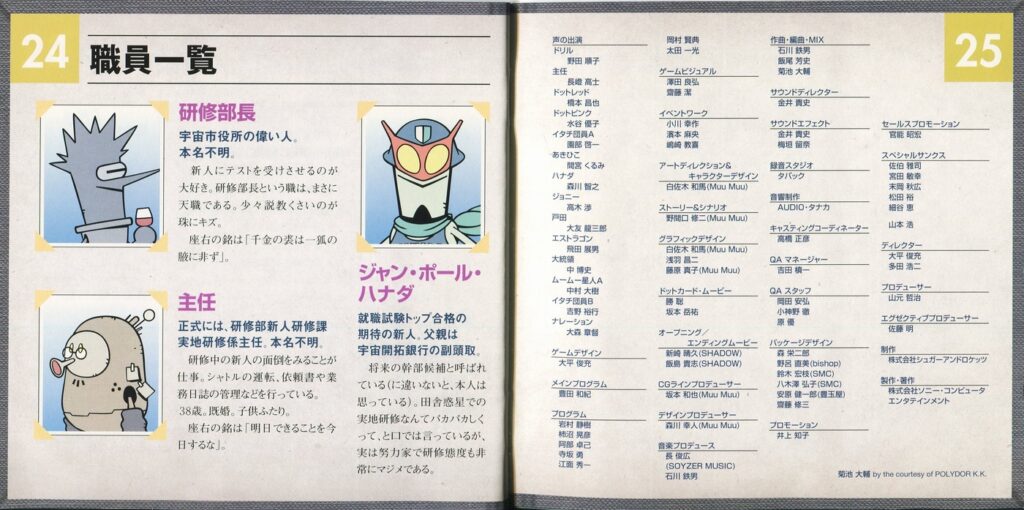 24
職員一覧
研修部長
宇宙市役所の偉い人。
本名不明。
新人にテストを受けさせるのが
大好き。研修部長という職は、まさに
天職である。少々説教くさいのが
珠にキズ。
座右の銘は「千金の裘は一狐の
腋に非ず」。
主任
正式には、研修部新人研修課
実地研修係主任。本名不明。
研修中の新人の面倒をみることが
仕事。シャトルの運転、依頼書や業
務日誌の管理などを行っている。
38歳。既婚。子供ふたり。
座右の銘は「明日できることを今
日するな」。
ジャン・ポール・
ハナダ
就職試験トップ合格の
期待の新人。父親は
宇宙開拓銀行の副頭取。
将来の幹部候補と呼ばれ
ている(に違いないと、本人は
思っている)。田舎惑星での
実地研修なんてバカバカしく
って、と口では言っているが、
実は努力家で研修態度も非
常にマジメである。
25
声の出演
ドリル
野田 順子
主任
長嶝 高士
ドットレッド
橋本 昌也
ドットピンク
水谷 優子
イタチ団員A
園部 啓一
あきひこ
間宮 くるみ
ハナダ
森川 智之
ジョニー
高木 渉
戸田
大友 龍三郎
エストラゴン
飛田 展男
大統領
中 博史
ムームー星人A
中村 大樹
イタチ団員B
吉野 裕行
ナレーション
大森 章督
ゲームデザイン
大平 俊充
メインプログラム
豊田 和紀
プログラム
岩村 静樹
柿沼 晃彦
阿部 卓己
寺坂 勇
江面 秀一
岡村 賢典
太田 一光
ゲームビジュアル
澤田 良弘
齋藤 潔
イベントワーク
小川 幸作
濱本 麻央
嶋崎 教喜
アートディレクション&
キャラクターデザイン
白佐木 和馬(Muu Muu)
ストーリー&シナリオ
野間口 修二(Muu Muu)
グラフィックデザイン
白佐木 和馬(Muu Muu)
浅羽 昌二
藤原 真子(Muu Muu)
ドットカード・ムービー
勝 聡
坂本 岳祐
オープニング/
エンディングムービー
新崎 晴久(SHADOW)
飯島 貴志(SHADOW)
CGラインプロデューサー
坂本 和也(Muu Muu)
デザインプロデューサー
森川 幸人(Muu Muu)
音楽プロデュース
長 俊広
(SOYZER MUSIC)
石川 鉄男
作曲・編曲・MIX
石川 鉄男
飯尾 芳史
菊池 大輔
サウンドディレクター
金井 貴史
サウンドエフェクト
金井 貴史
梅垣 留奈
録音スタジオ
タバック
音響制作
AUDIO・タナカ
キャスティングコーディネーター
高橋 正彦
QA マネージャー
吉田 槙一
QA スタッフ
岡田 安弘
小神野 徹
原 優
パッケージデザイン
森 栄二郎
野呂 直美(bishop)
鈴木 宏枝(SMC)
八木澤 弘子(SMC)
安原 健一郎(豊玉屋)
齋藤 修三
プロモーション
井上 知子
セールスプロモーション
官能 昭宏
スペシャルサンクス
佐伯 雅司
宮田 敏幸
末岡 秋広
松田 裕
細谷 恵
山本 浩
ディレクター
大平 俊充
多田 浩二
プロデューサー
山元 哲治
エグゼクティブプロデューサー
佐藤 明
制作
株式会社シュガーアンドロケッツ
製作・著作
株式会社ソニー・コンピュータ
エンタテインメント
菊池 大輔 by the courtesy of POLYDOR K.K.